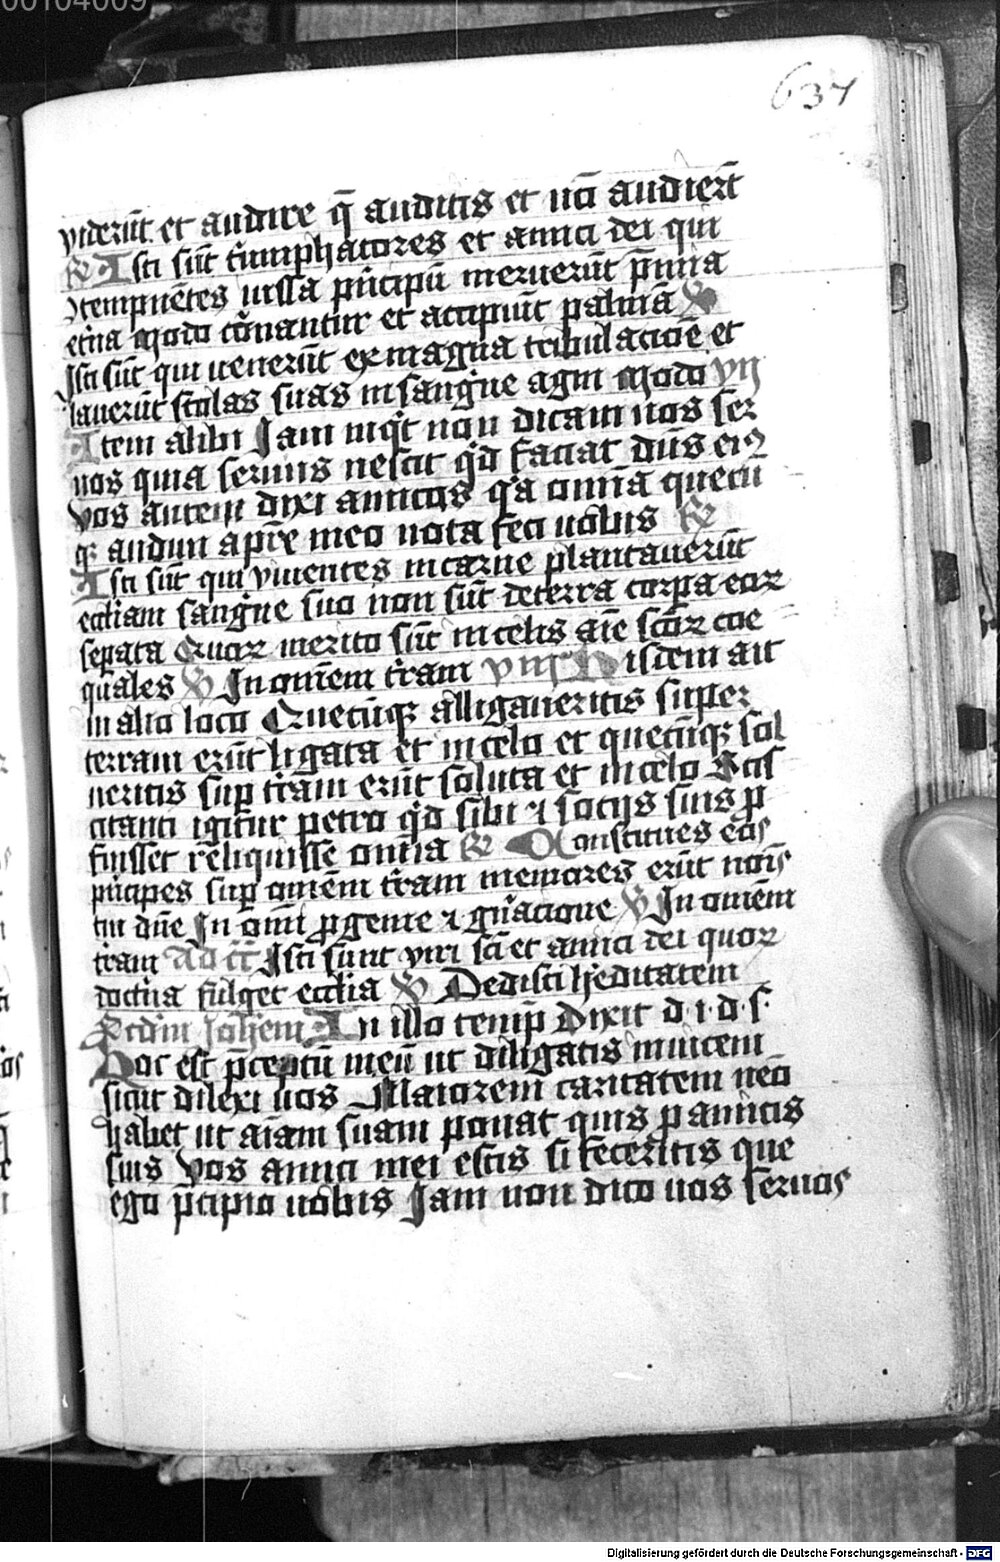 00104009
637
viderūt et audire q̄ auditis et nō audierūt
R Isti sūt triumphatores et amici dei qui
ɔtempnētes iussa prīcipū meruerūt p̄mia
et̄na Modo corōnantur et accipiūt palmā V
Isti sūt qui uenerūt ex magna tribulacioē et
lauerūt stolas suas in sangīne agni Modo VII
Item alibi Iam inqt non dicam uos ser
uos quia seruus nescit qd faciat dn̄s eius
Vos autem dixi amicos qa om̄ia quecū
qꝫ audiui a pr̄e meo nota feci uobis R
Isti sūt qui viuentes in carne plantauerūt
eccliam sangīne suo non sūt de terra corpa eoꝝ
sepata Quoꝝ merito sūt in celis aīe scōꝝ coe
quales V In om̄em tram VIII Hisdem ait
in alio loco Quecūqꝫ alligaueritis super
terram erūt ligata et in celo et quecūqꝫ sol
ueritis sup tram erūt soluta et in celo Scis
citanti igitur petro qd sibi ⁊ socijs suis p̄
fuisset reliquisse om̄ia R Constitues eos
prīcipes sup om̄em tram memores erūt nois
tui dn̄e In om̄i ꝓgenie ⁊ gn̄acione V In om̄em
tram Ad Isti sunt viri sci et amici dei quoꝝ
doctrīa fulget ecclia V Dedisti hereditatem
Scdm Johem In illo temp̄ Dixit d. i. d. s.
Hoc est p̄ceptū meū ut diligatis inuicem
sicut dilexi uos Maiorem caritatem nēo
habet ut aīam suam ponat quis ꝓ amicis
suis Vos amici mei estis si feceritis que
ego p̄cipio uobis Iam non dico uos seruos
Digitalisierung gefördert durch die Deutsche Forschungsgemeinschaft - DFG